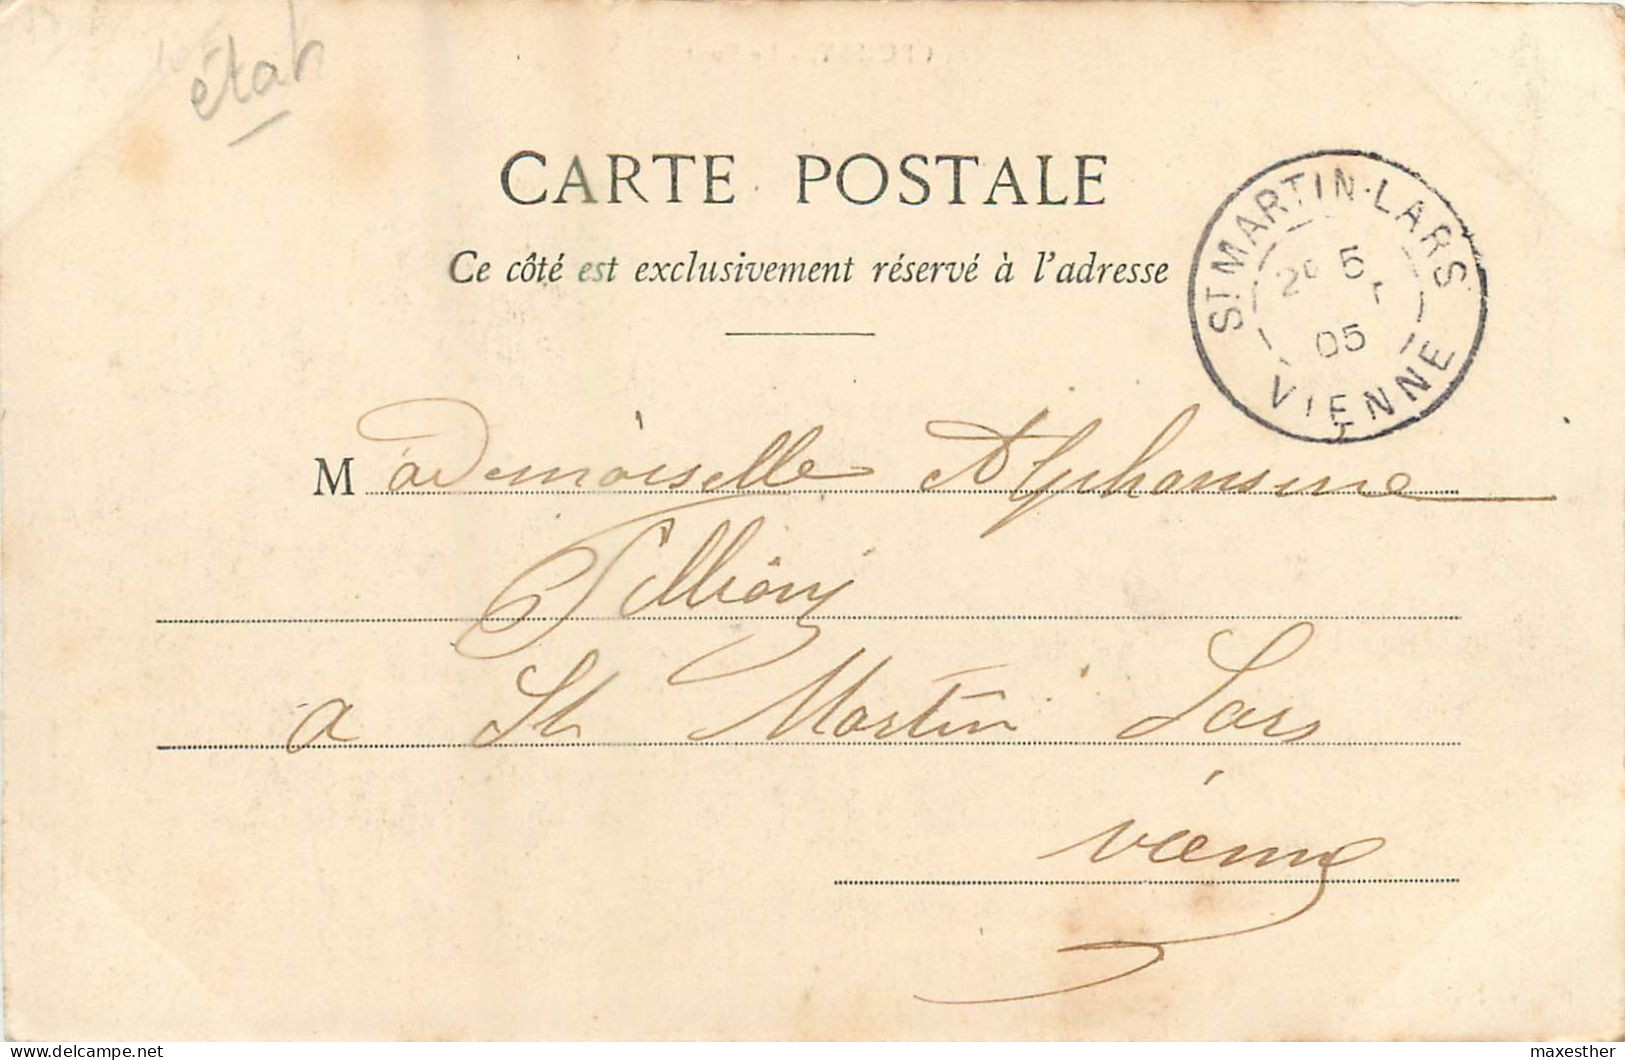 étah
CARTE POSTALE
Ce côté est exclusivement réservé à l'adresse
ST MARTIN-LARS
5
05
VIENNE
Mademoiselle Alphonsine
a St Martin Lars
Vienne
delcampe.net
maxesther